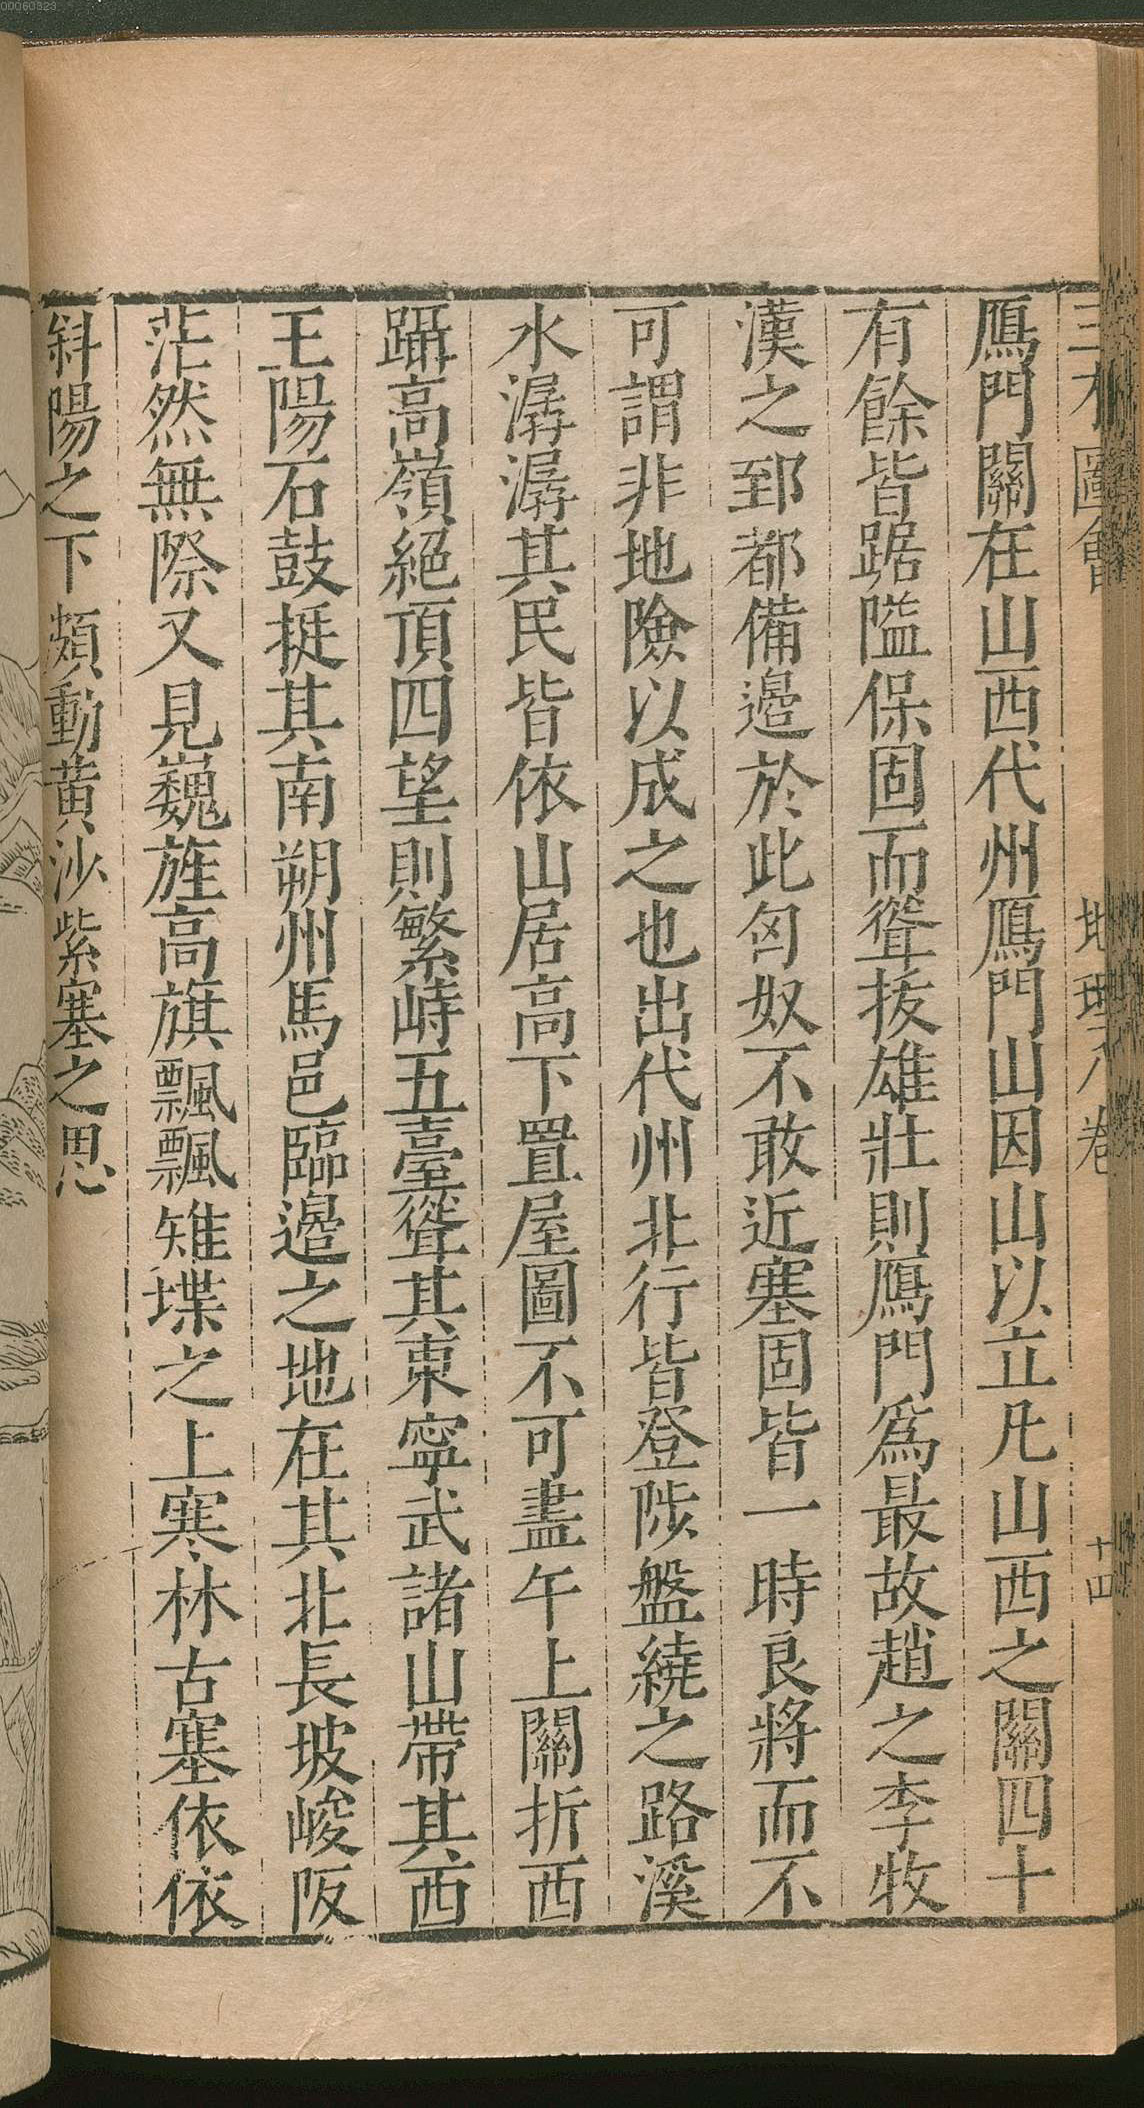 00060323
三才圖會 地理八卷 十四
鴈門關在山西代州鴈門山因山以立凡山西之關四十
有餘皆踞隘保固而聳拔雄壯則鴈門爲最故趙之李牧
漢之郅都備邉於此匈奴不敢近塞固皆一時良將而不
可謂非地險以成之也出代州北行皆登陟盤繞之路溪
水潺潺其民皆依山居高下置屋圖不可盡午上關折西
躡高嶺絕頂四望則繁峙五臺聳其東寧武諸山帶其西
王陽石鼓挺其南朔州馬邑臨邉之地在其北長坡峻阪
茫然無際又見巍旌高旗飄飄雉堞之上寒林古塞依依
斜陽之下頗動黄沙紫塞之思